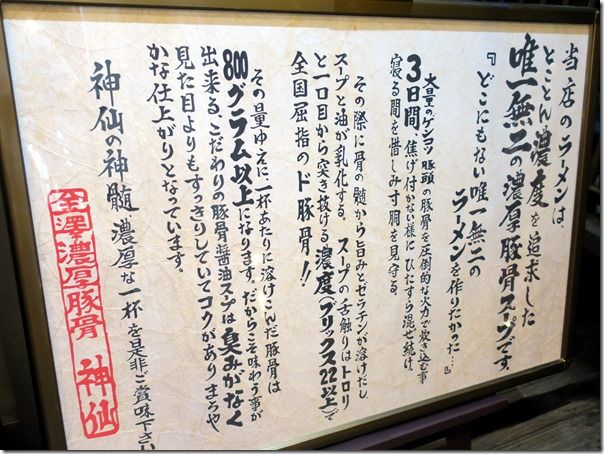 当店のラーメンは、
とことん濃度を追求した
唯一無二の濃厚豚骨スープです。
『どこにもない唯一無二の
ラーメンを作りたかった…』
大量のゲンコツ、豚頭の豚骨を圧倒的な火力で炊き込む事
3日間、焦げ付かない様にひたすら混ぜ続け、
寝る間を惜しみ寸胴を見守る。
その際に骨の髄から旨みとゼラチンが溶けだし、
スープと油が乳化する。スープの舌触りはトロリ
と一口目から突き抜ける濃度(ブリックス22以上)で
全国屈指のド豚骨!
その量ゆえに一杯あたりに溶けこんだ豚骨は
800グラム以上になります。だからこそ味わう事が
出来る、こだわりの豚骨醤油スープは臭みがなく
見た目よりもすっきりしていてコクがありまろや
かな仕上がりとなっています。
神仙の神髄 濃厚な一杯を是非ご賞味下さい
金澤濃厚豚骨 神仙